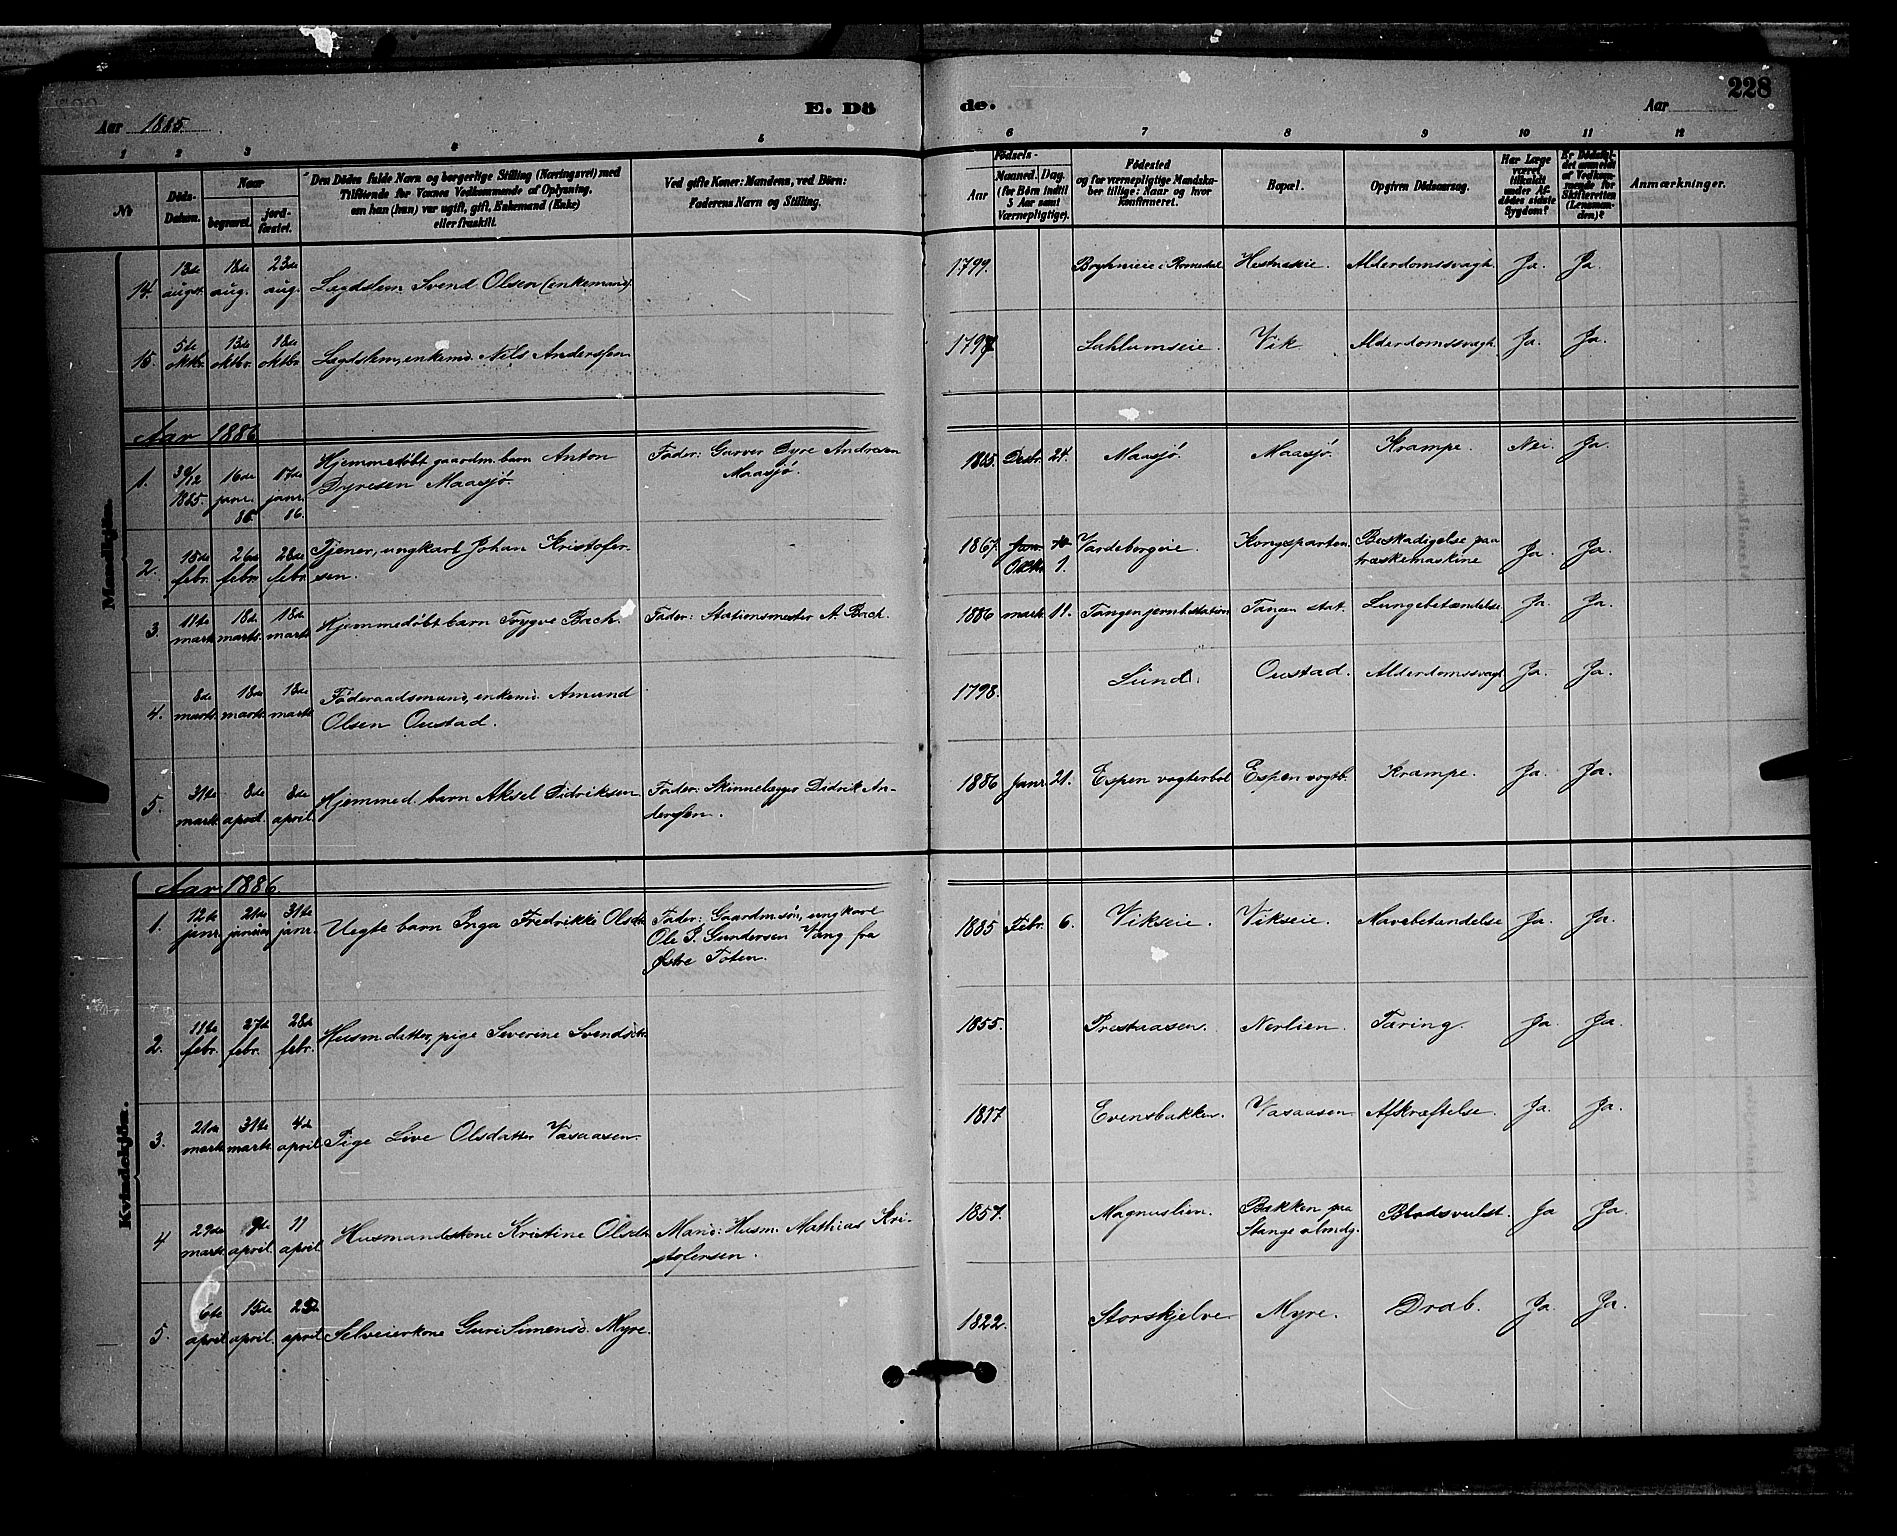 228
Aar 1885.
E. Dö
de.
Aar
1 2 3 4 5 6 7 8 9 10 11 12
№
Døds-
Datum.
Naar
begravet.
jord-
fæstet.
Den Dødes fulde Navn og borgerlige Stilling (Næringsvei) med
Tilföiende for Voxnes Vedkommende af Oplysning,
om han (hun) var ugift, gift, Enkemand (Enke)
eller fraskilt.
Ved gifte Koner: Mandens, ved Börn:
Faderens Navn og Stilling.
Aar
Födsels-
Maaned. Dag.
(for Børn indtil
5 Aar samt
Værnepligtige).
Födested
og for værnepligtige Mandska-
ber tillige: Naar og hvor
konfirmeret.
Bopæl.
Opgiven Dödsaarsag.
Har Læge
været
tilkaldt
under Af-
dødes sidste
Sygdom?
Er Dødsfal-
det anmeldt
af Vedkom-
mende for
Skifteretten
(Lensman-
den)?
Anmærkninger.
Mandkjön.
14. 13de augst. 18de aug. 23de aug. Lægdslem Svend Olsen (enkemand). 1799. Bryhnieie i Romedal Hestnæseie. Alderdomssvagh. Ja. Ja.
15. 5te oktbr. 13de oktbr. 18de oktbr. Lægdslem, enkemd. Nels Anderssen 1797 Sahlumseie. Vik Alderdomssvagh. Ja. Ja.
Aar 1886
1. 30/12 1885. 16de janr. 86. 17de janr. 86. Hjemmedøbt gaardm. barn Anton
Dyresen Maasjø. Fader: Garver Dyre Andresen
Maasjø. 1885. Desbr. 24. Maasjø. Maasjø. Krampe. Nei. Ja.
2. 15de febr. 26de febr. 28de febr. Tjener, ungkarl Johan Kristofer-
sen. 1867. Janr. Oktbr. 1. Vardebergeie. Kongsparten. Beskadigelse paa
træskemaskine Ja. Ja.
3. 11te marts 18de marts. 18de marts Hjemmedøbt barn Trygve Bach. Fader: Stationsmester A. Bach. 1886 marts 11. Tangen jernb.station Tangen stat. Lungebetændelse Ja. Ja.
4. 8de marts. 18de marts. 18de marts Føderaadsmand, enkemd. Amund
Olsen Oustad. 1798. Lund. Oustad. Alderdomssvagh Ja. Ja.
5. 31te marts. 8de april. 8de april. Hjemmed. barn Aksel Didriksen Fader: Skinnelægger Didrik An-
derssen. 1886 Janr. 21. Espen vogterbol. Espen vogtb. Krampe. Ja. Ja.
Kvindekjön.
Aar 1886.
1. 12te janr. 21de januar 31te janr. Uegte barn Inga Fredrikke Olsdtr. Fader: Gaardm.søn, ungkarl
Ole P. Gundersen Vang fra
Østre Toten. 1885 Febr. 6. Vikseie. Vikseie. Mavebetændelse Ja. Ja.
2. 11te febr. 27de febr. 28de febr. Husm.datter, pige Severine Svendsdtr. 1855. Prestaasen. Nerlien. Taring. Ja. Ja.
3. 21de marts 31te marts 4de april Pige Live Olsdatter Vasaasen. 1817 Evensbakken. Vasaasen Afkræftelse. Ja. Ja.
4 29de marts 9de april. 11 april Husmandskone Kristine Olsdtr. Mand: Husm. Mathias Kri-
stofersen. 1857. Magnuslien. Bakken paa
Stange almdg. Blodsvulst. Ja Ja.
5. 6te april 15de april. 25de april Selveierkone Guri Simensd. Myre. 1822. Storskjelve Myre. Drab. Ja. Ja.